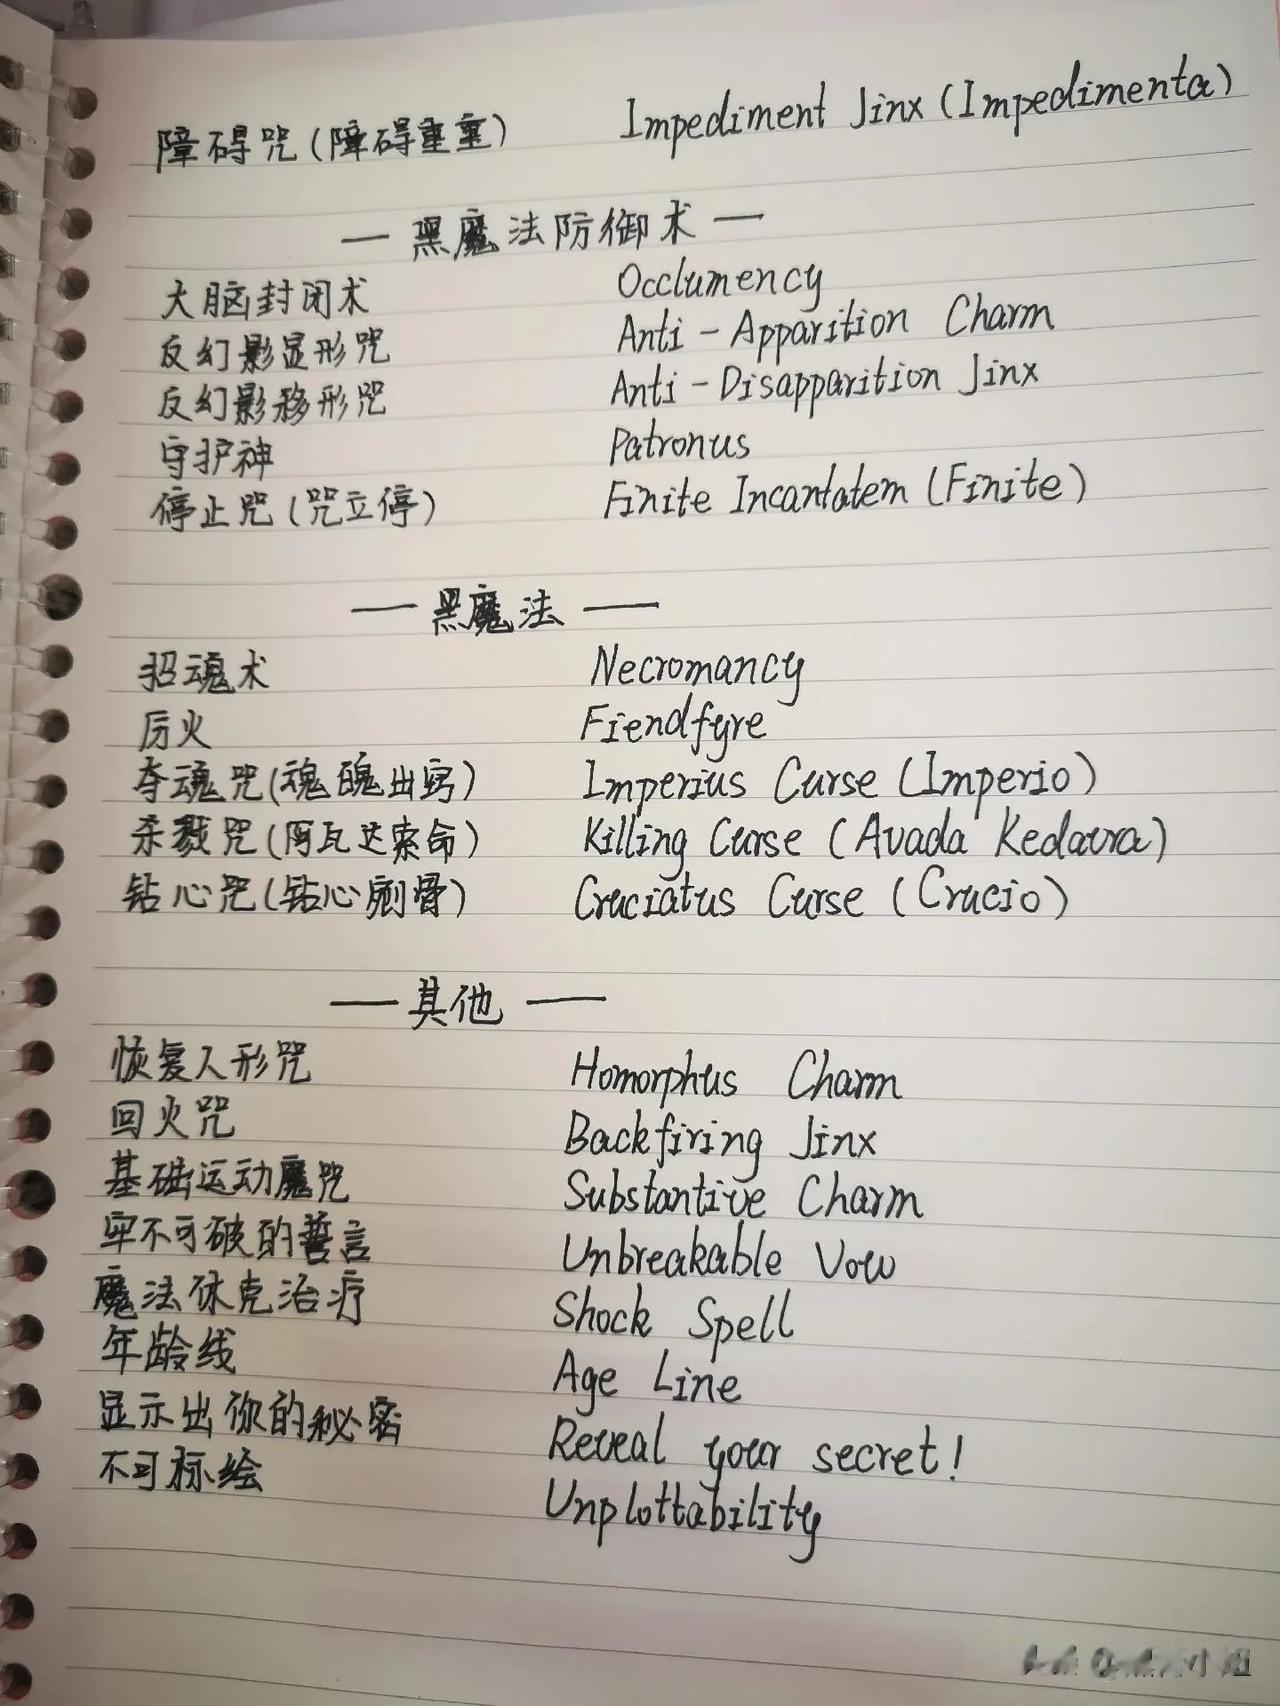 障碍咒(障碍重重) Impediment Jinx (Impedimenta)
— 黑魔法防御术 —
大脑封闭术 Occlumency
反幻影显形咒 Anti-Apparition Charm
反幻影移形咒 Anti-Disapparition Jinx
守护神 Patronus
停止咒(咒立停) Finite Incantatem (Finite)
— 黑魔法 —
招魂术 Necromancy
厉火 Fiendfyre
夺魂咒(魂魄出窍) Imperius Curse (Imperio)
杀戮咒(阿瓦达索命) Killing Curse (Avada Kedavra)
钻心咒(钻心剜骨) Cruciatus Curse (Crucio)
— 其他 —
恢复人形咒 Homorphus Charm
回火咒 Backfiring Jinx
基础运动魔咒 Substantive Charm
牢不可破的誓言 Unbreakable Vow
魔法休克治疗 Shock Spell
年龄线 Age Line
显示出你的秘密 Reveal your secret!
不可标绘 Unplottability